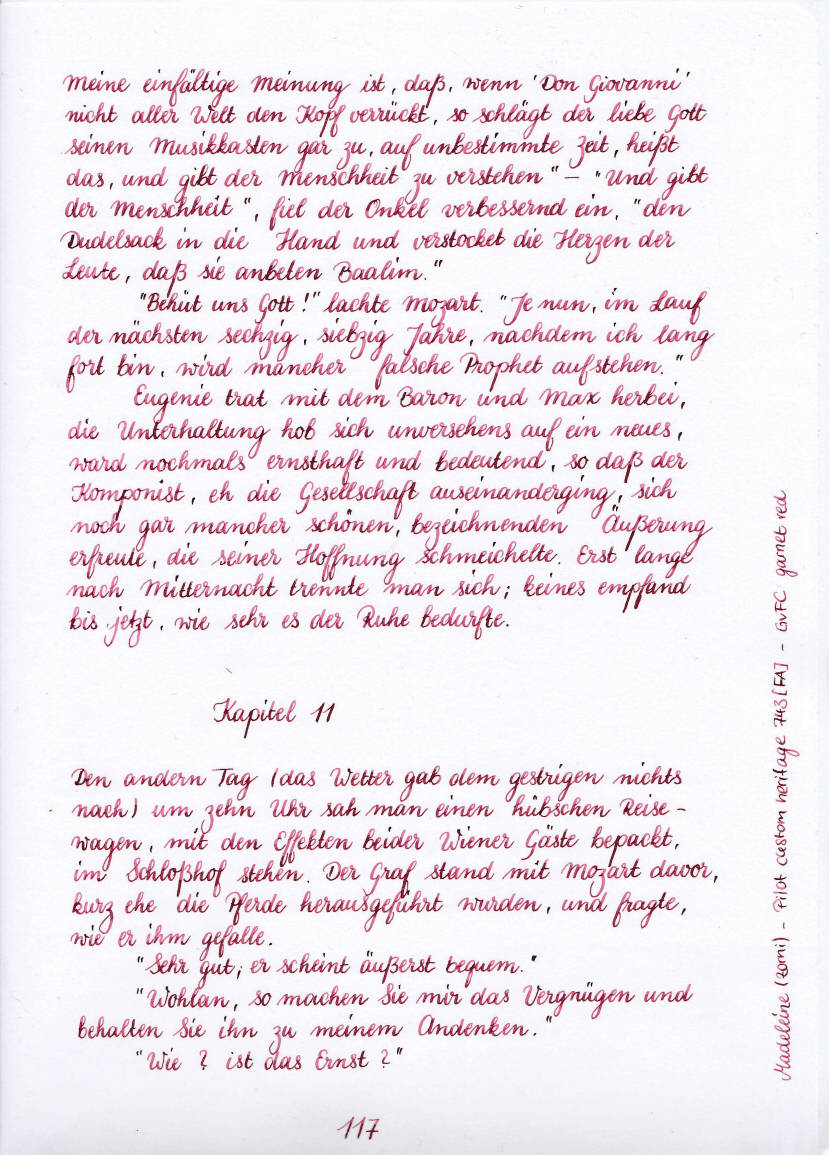 Meine einfältige Meinung ist, daß, wenn 'Don Giovanni'
nicht aller Welt den Kopf verrückt, so schlägt der liebe Gott
seinen Musikkasten gar zu, auf unbestimmte Zeit, heißt
das, und gibt der Menschheit zu verstehen" – "Und gibt
der Menschheit", fiel der Onkel verbessernd ein, "den
Dudelsack in die Hand und verstocket die Herzen der
Leute, daß sie anbeten Baalim."
"Behüt uns Gott!" lachte Mozart. "Je nun, im Lauf
der nächsten sechzig, siebzig Jahre, nachdem ich lang
fort bin, wird mancher falsche Prophet aufstehen."
Eugenie trat mit dem Baron und Max herbei,
die Unterhaltung hob sich unversehens auf ein neues,
ward nochmals ernsthaft und bedeutend, so daß der
Komponist, eh die Gesellschaft auseinanderging, sich
noch gar mancher schönen, bezeichnenden Äußerung
erfreute, die seiner Hoffnung schmeichelte. Erst lange
nach Mitternacht trennte man sich; keines empfand
bis jetzt, wie sehr es der Ruhe bedurfte.
Kapitel 11
Den andern Tag (das Wetter gab dem gestrigen nichts
nach) um zehn Uhr sah man einen hübschen Reise-
wagen, mit den Effekten beider Wiener Gäste bepackt,
im Schloßhof stehen. Der Graf stand mit Mozart davor,
kurz ehe die Pferde herausgeführt wurden, und fragte,
wie er ihm gefalle.
"Sehr gut; er scheint äußerst bequem."
"Wohlan, so machen Sie mir das Vergnügen und
behalten Sie ihn zu meinem Andenken."
"Wie? ist das Ernst?"
117
Madeleine (zomi) - Pilot custom heritage 743 [FA] - GvFC garnet red